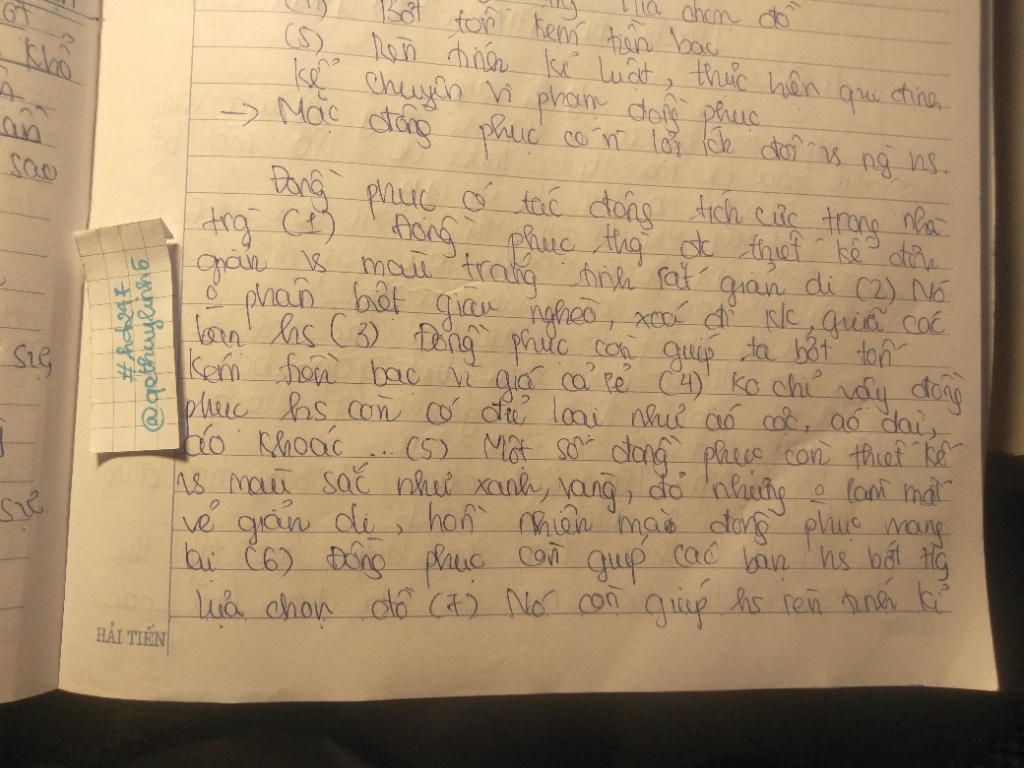 lựa chọn đồ
Bớt tốn kém tiền bạc
(5) Rèn tính kỉ luật, thực hiện qui định
Kể chuyện vi phạm đồng phục
-> Mặc đồng phục có n lợi ích đối vs ng hs.
Đồng phục có tác động tích cực trong nhà
trg (1) Đồng phục thg đc thiết kế đơn
giản vs màu trắng tinh rất giản dị (2) Nó
phân biệt giàu nghèo, xoá đi k/c giữa các
bạn hs (3) Đồng phục còn giúp ta bớt tốn
kém tiền bạc vì giá cả rẻ (4) Ko chỉ vậy đồng
phục hs còn có đủ loại như áo cộc, áo dài,
áo khoác ... (5) Một số đồng phục còn thiết kế
vs màu sắc như xanh, vàng, đỏ nhưng o làm mất
vẻ giản dị, hồn nhiên mà đồng phục mang
lại (6) Đồng phục còn giúp các bạn hs bớt tg
lựa chọn đồ (7) Nó còn giúp hs rèn tính kỉ
HẢI TIẾN
khổ
sao